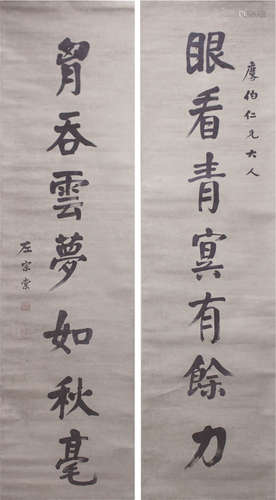 眼看青冥有餘力
廖伯仁兄大人
胷吞雲夢如秋毫
左宗棠